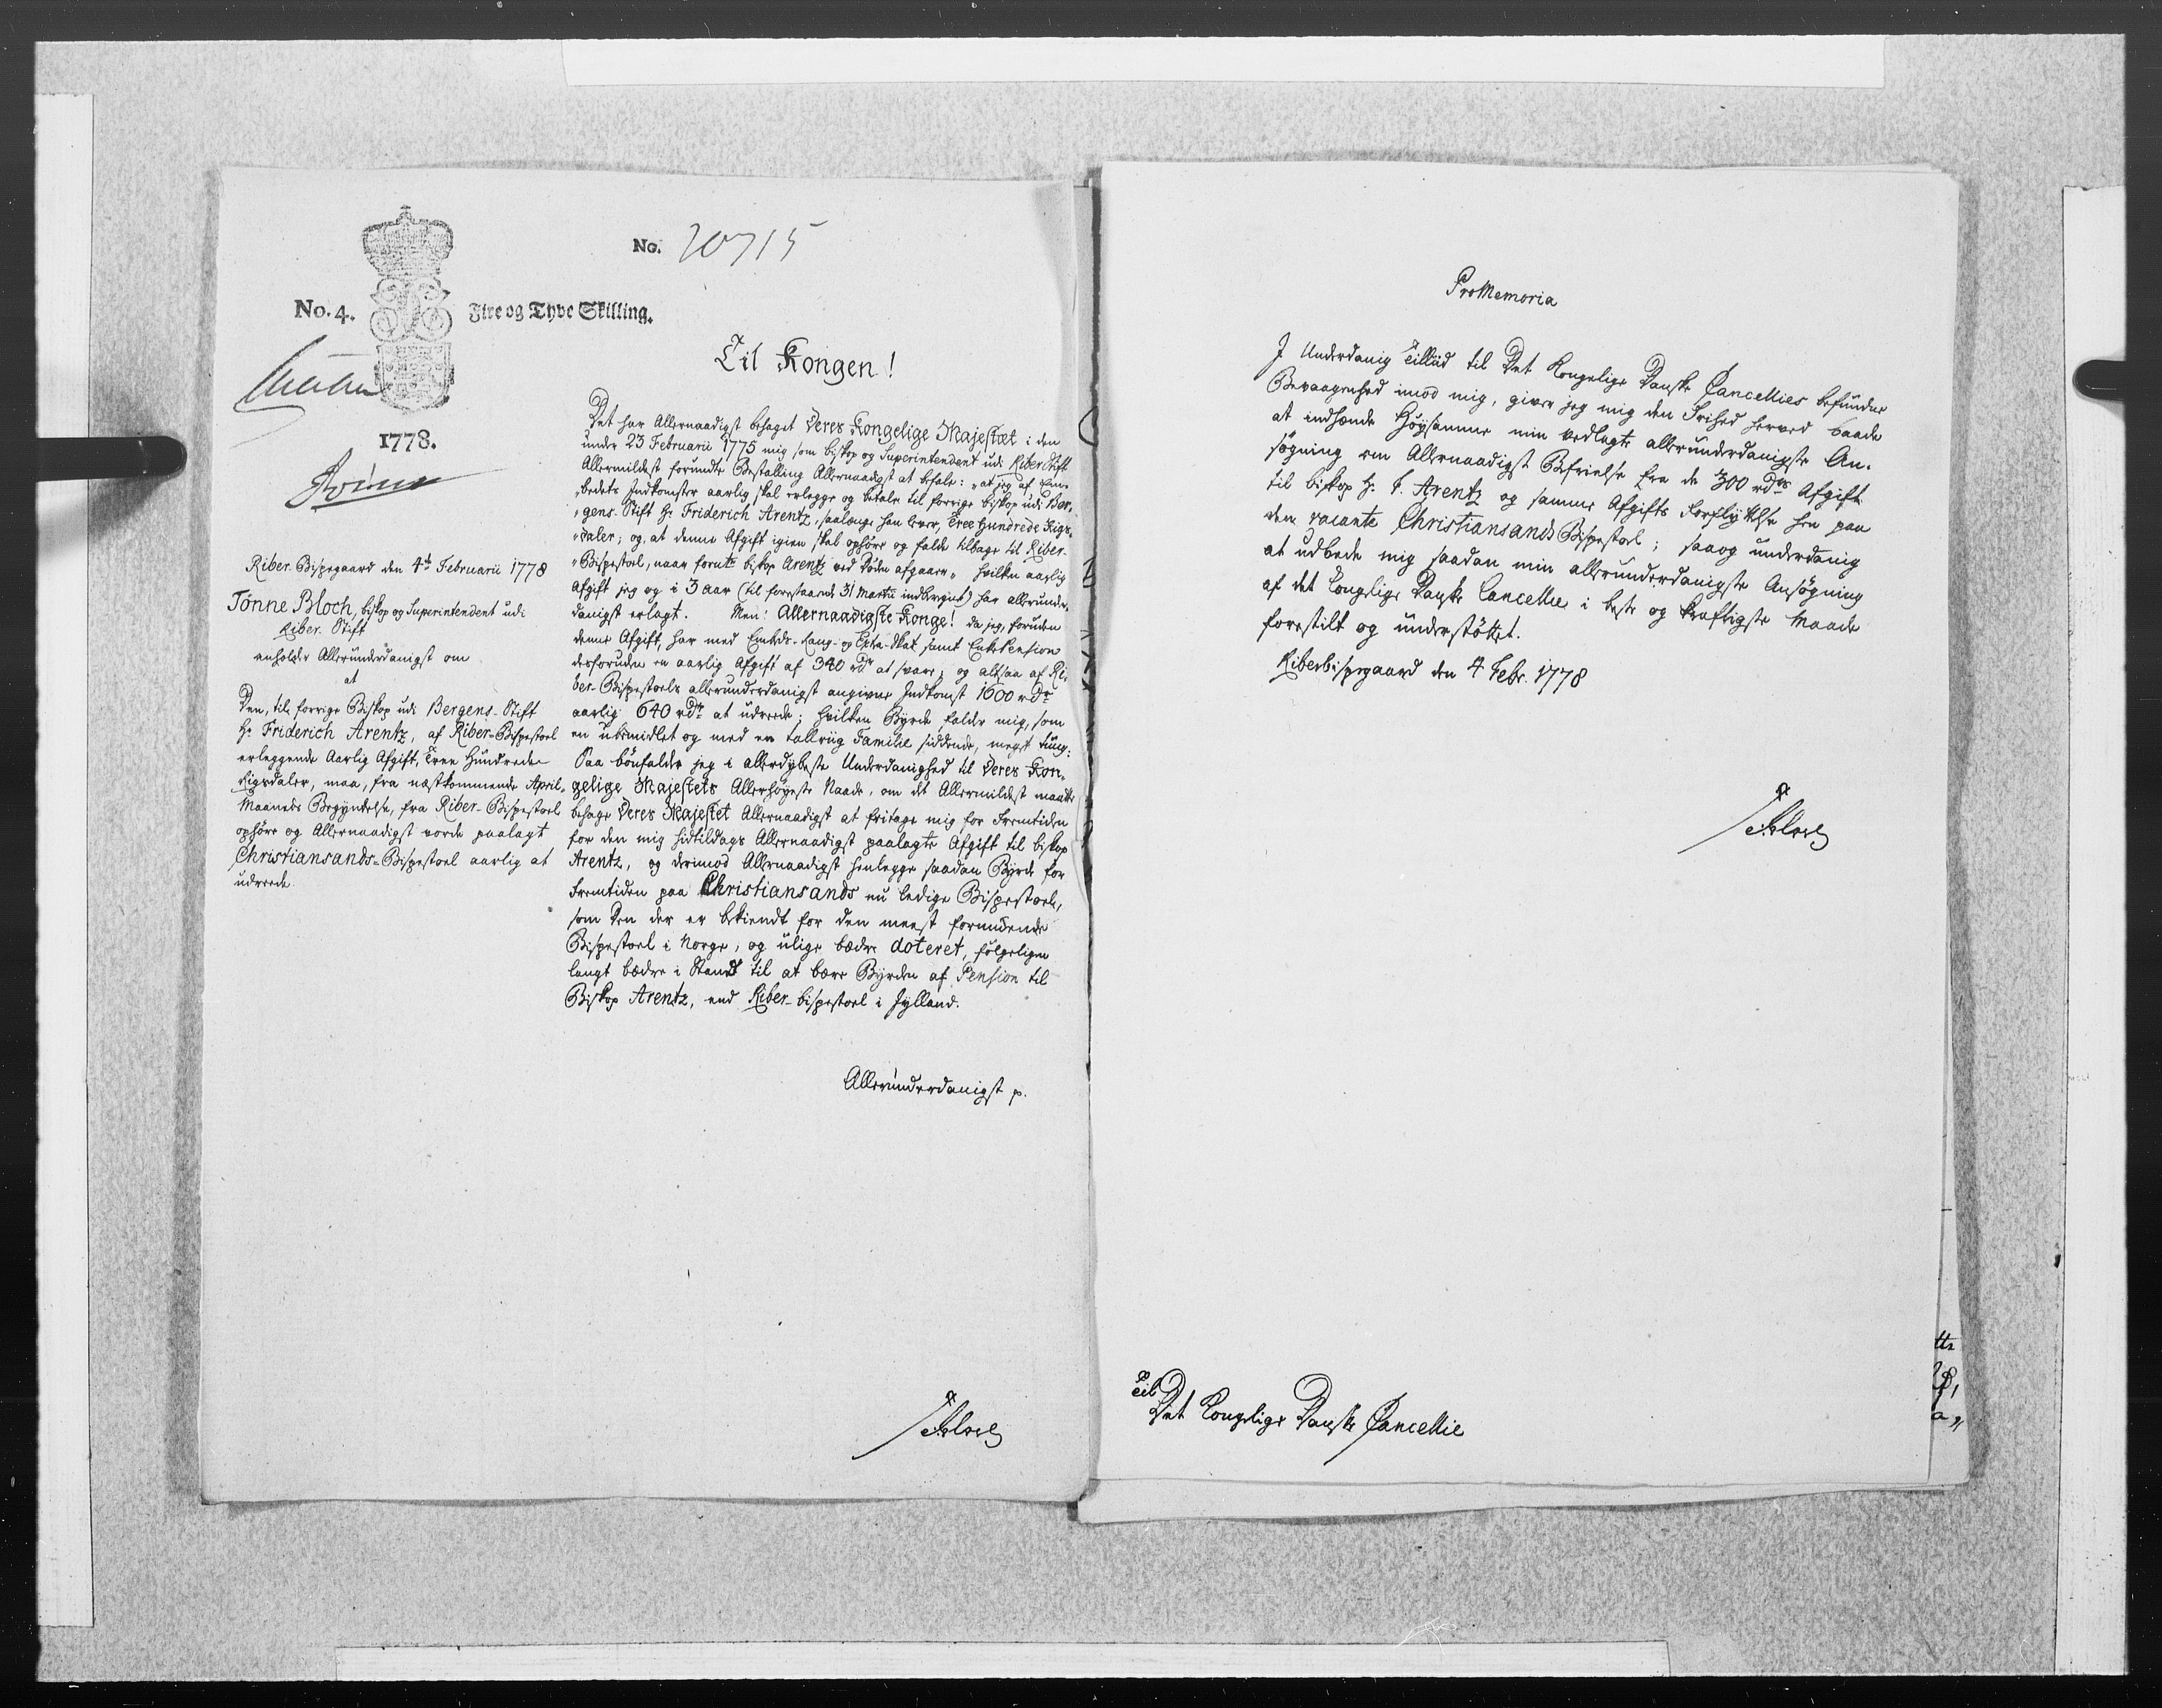 No. 20715
No. 4.
Fire og Tyve Skilling.
1778.
Til Kongen!
Det har Allernaadigst behaget Deres Kongelige Majestæt i den
under 23 Februarii 1775 mig som biskop og Superintendent udi Riber Stift
Allermildest forundte Bestalling Allernaadigst at befale: "at jeg af Em-
"bedets Indkomster aarlig skal erlegge og betale til forrige biskop udi Ber-
"gens-Stift Hr Friderich Arentz, saalænge han lever, Tree Hundrede Rigs-
"daler; og, at denne Afgift igien skal ophøre og falde tilbage til Riber-
"Bispestoel, naar forнte biskop Arentz ved Døden afgaaer" hvilken aarlig
Afgift jeg og i 3 aar (til forestaaende 31 Martii indberegnet) har allerunder-
danigst erlagt. Men! Allernaadigste Konge! da jeg, foruden
denne Afgift, har med Embeds- Rang- og Extra-Skat samt EnkePension
desforuden en aarlig Afgift af 340 rdr at svare; og altsaa af Ri-
ber-Bispestoels allerunderdanigst angivne Indkomst 1600 rdr
aarlig 640 rdr at udreede; hvilken Byrde falder mig, som
en ubemidlet og med en talrig Familie siddende, meget tung:
Saa bønfalder jeg i allerdybeste Underdanighed til Deres Kon-
gelige Majestets Allerhøyeste Naade, om det Allermildest maatte
behage Deres Majestet Allernaadigst at fritage mig for Fremtiden
for den mig hidtildags Allernaadigst paalagte Afgift til biskop
Arentz, og derimod Allernaadigst henlegge saadan Byrde for
Fremtiden paa Christiansands nu ledige Bispestoel,
som den der er bekiendt for den meest formuende
Bispestoel i Norge, og ulige bedre doteret, følgeligen
langt bedre i Stand til at bære Byrden af Pension til
Biskop Arentz, end Riber-bispestoel i Jylland.
Allerunderdanigst p.
Riber-Bispegaard den 4de Februarii 1778
Tönne Bloch, biskop og Superintendent udi
Riber-Stift
anholder Allerunderdanigst om
at
Den, til forrige Biskop udi Bergens-Stift
Hr Friderich Arentz, af Riber-Bispestoel
erleggende Aarlig Afgift, Tree Hundrede
Rigsdaler, maa, fra nestkommende April-
Maaneds Begyndelse, fra Riber-Bispestoel
ophøre og Allernaadigst vorde paalagt
Christiansands-Bispestoel aarlig at
udreede
TBloch
ProMemoria
I Underdanig Tilliid til Det Kongelige Danske Cancellies befundne
Bevaagenhed imod mig, giver jeg mig den Frihed herved baade
at indsende Høysamme min vedlagte allerunderdanigste An-
søgning om Allernaadigst Befrielse fra de 300 rdrs Afgift
til biskop Hr F. Arentz og samme Afgifts Forflyttelse hen paa
den vacante Christiansands Bispestoel; saa og underdanig
at udbede mig saadan min allerunderdanigste Ansøgning
af det Kongelige Danske Cancellie i beste og kraftigste Maade
forestilt og understøttet.
Riberbispegaard den 4 Febr. 1778
TBloch
Til
Det Kongelige Danske Cancellie